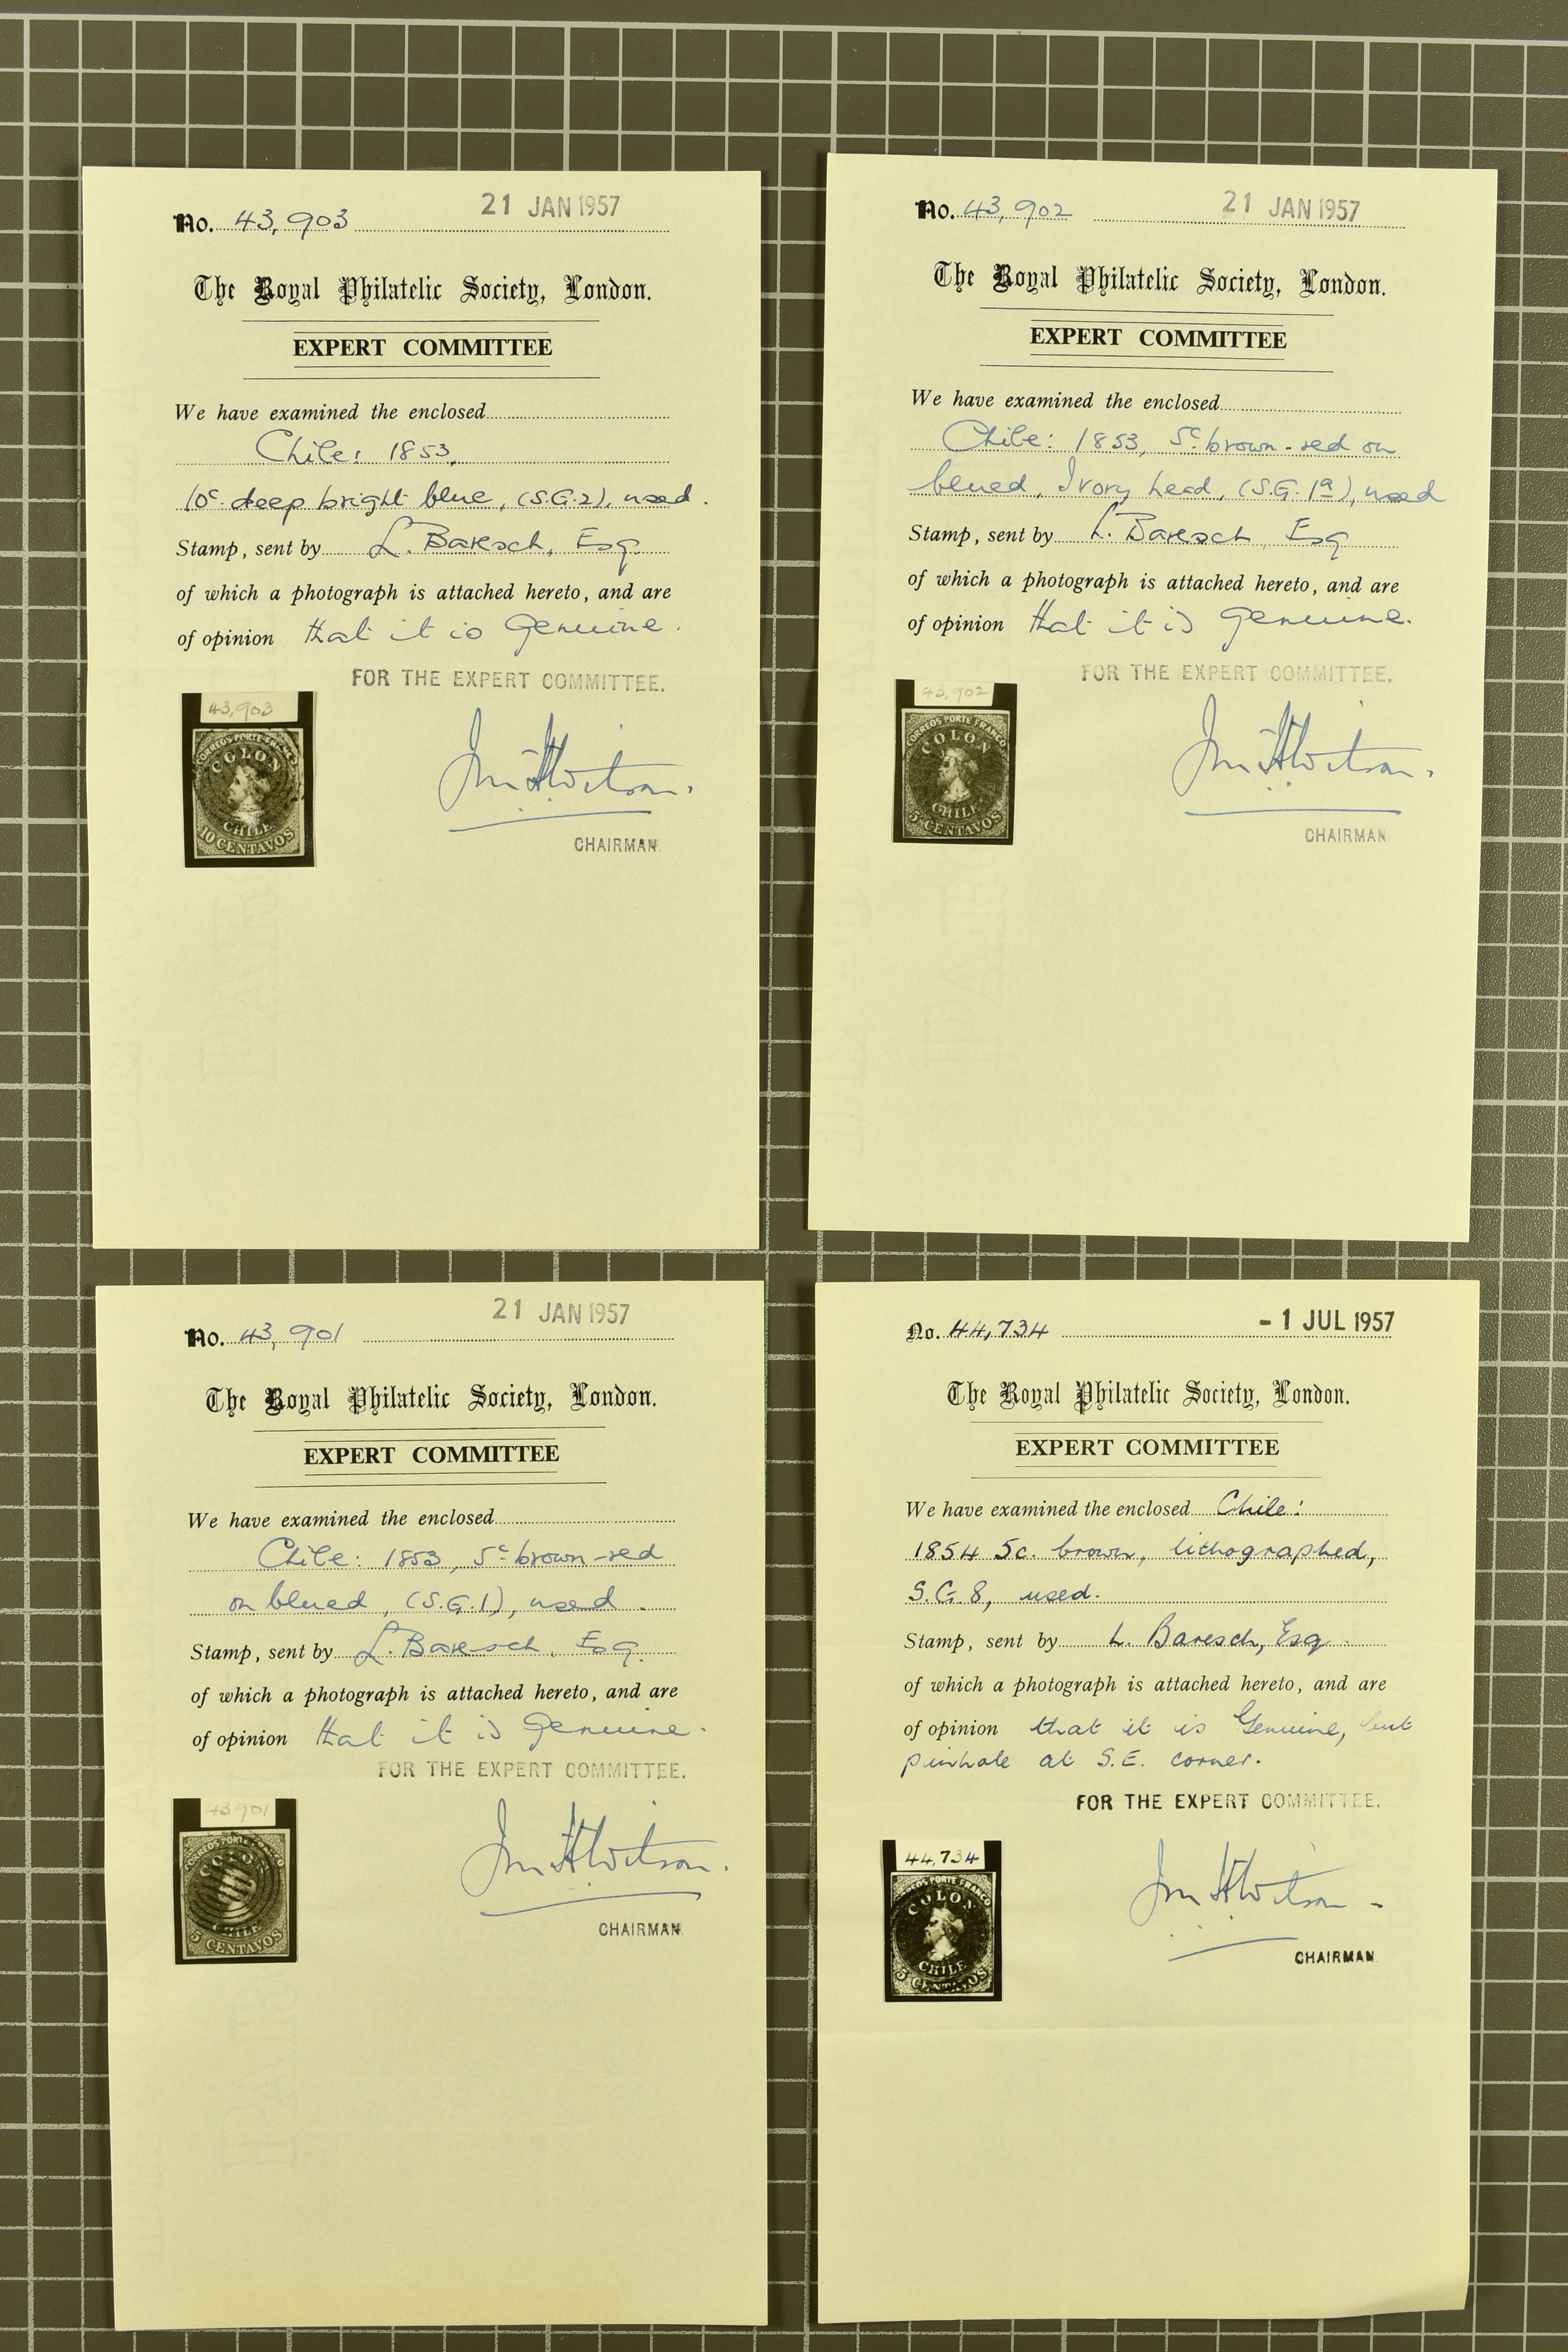 No. 43,903 21 JAN 1957
The Royal Philatelic Society, London.
EXPERT COMMITTEE
We have examined the enclosed
Chile: 1853,
10c. deep bright blue, (S.G.2), used.
Stamp, sent by L. Baresch, Esq
of which a photograph is attached hereto, and are
of opinion that it is Genuine.
FOR THE EXPERT COMMITTEE.
43,903
CORREOS PORTE FRANCO
COLON
CHILE
10 CENTAVOS
CHAIRMAN.
No. 43,902 21 JAN 1957
The Royal Philatelic Society, London.
EXPERT COMMITTEE
We have examined the enclosed
Chile: 1853, 5c. brown-red on
blued, Ivory head, (S.G. 1a), used
Stamp, sent by L. Baresch, Esq
of which a photograph is attached hereto, and are
of opinion that it is Genuine.
FOR THE EXPERT COMMITTEE.
43,902
CORREOS PORTE FRANCO
COLON
CHILE
5 CENTAVOS
CHAIRMAN.
No. 43,901 21 JAN 1957
The Royal Philatelic Society, London.
EXPERT COMMITTEE
We have examined the enclosed
Chile: 1853, 5c brown-red
on blued, (S.G.1), used.
Stamp, sent by L. Baresch, Esq.
of which a photograph is attached hereto, and are
of opinion that it is Genuine.
FOR THE EXPERT COMMITTEE.
43901
CORREOS PORTE FRANCO
COLON
CHILE
5 CENTAVOS
CHAIRMAN.
No. 44,734 - 1 JUL 1957
The Royal Philatelic Society, London.
EXPERT COMMITTEE
We have examined the enclosed Chile:
1854 5c. brown, lithographed,
S.G. 8, used.
Stamp, sent by L. Baresch, Esq.
of which a photograph is attached hereto, and are
of opinion that it is Genuine, but
pinhole at S.E. corner.
FOR THE EXPERT COMMITTEE.
44,734
CORREOS PORTE FRANCO
COLON
CHILE
5 CENTAVOS
CHAIRMAN.